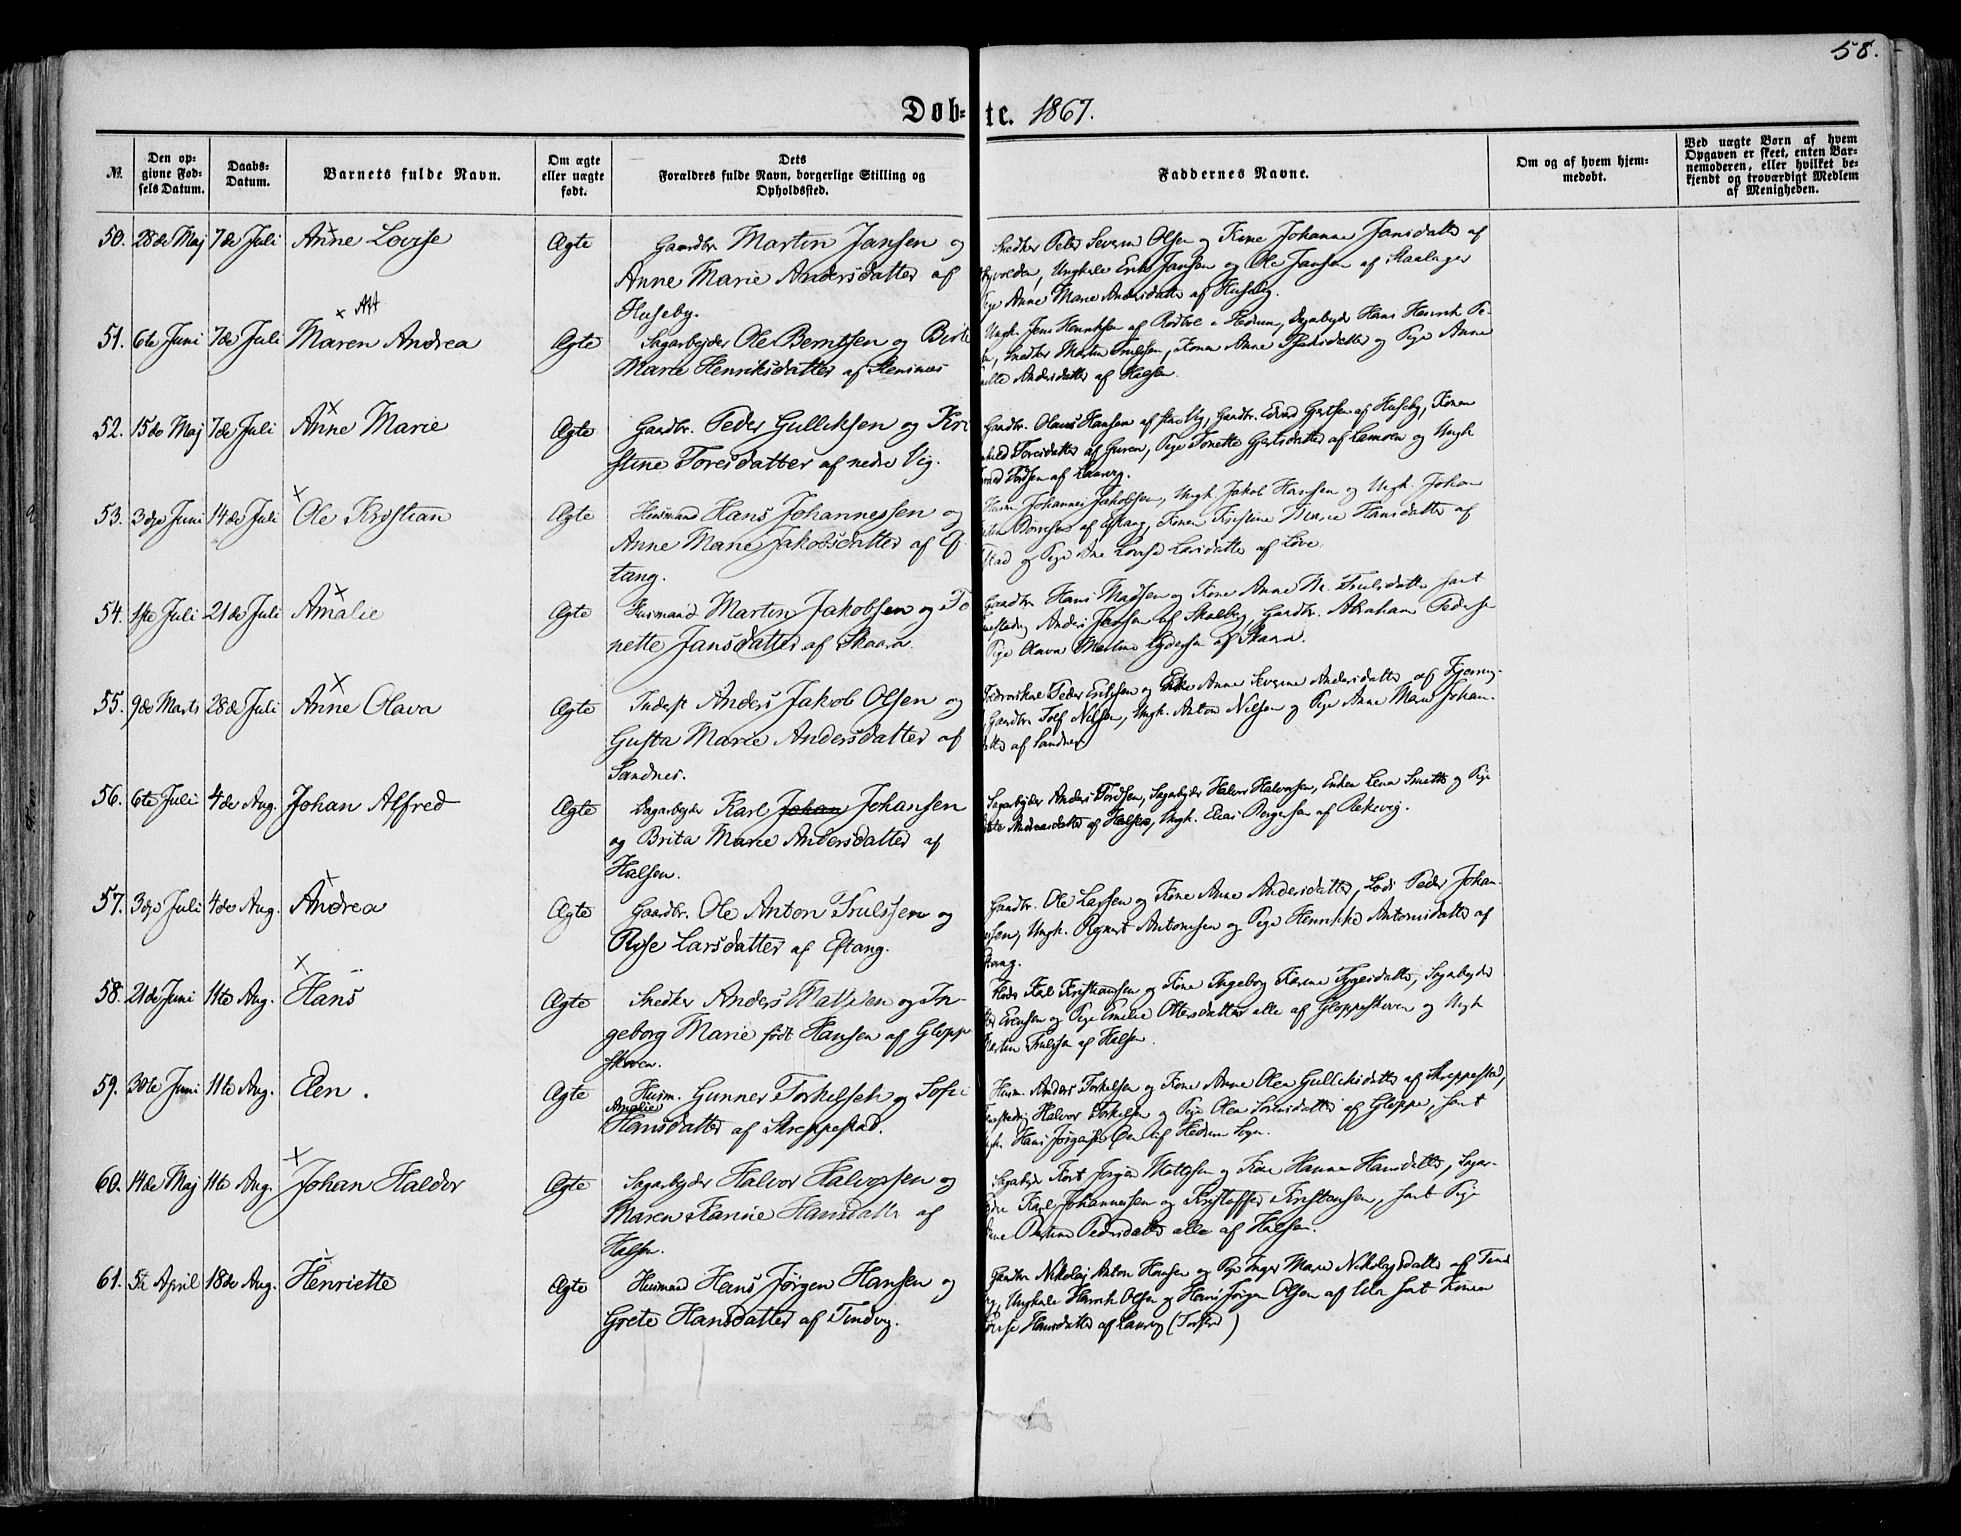 58.
Døbte. 1867.
№.
Den opgivne Fødsels Datum.
Daabs-Datum.
Barnets fulde Navn.
Om ægte eller uægte født.
Dets Forældres fulde Navn, borgerlige Stilling og Opholdssted.
Faddernes Navne.
Om og af hvem hjemmedøbt.
Ved uægte Børn af hvem Opgaven er skeet, enten Barnemoderen, eller hvilket bekjendt og troværdigt Medlem af Menigheden.
50. 28de Maj 7de Juli Anne Lovise Ægte Gaardbr. Martin Jansen og
Anne Marie Andersdatter af
Huseby.
Snedker Peder Severin Olsen og Kone Johanne Jansdatter af
Ungkarle Erik Jansen og Ole Jansen af
Pige Anne Marie Andersdatter af Huseby.
51. 6te Juni 7de Juli Maren Andrea Ægte Sagarbejder Ole Berntsen og Birte
Marie Henriksdatter af Stensnæs
Ungk. Jens Henriksen af i Hedrum, Hans Henrik
Snedker Martin Trulssen, Konen Anne og Pige Anne
Andersdatter af Halsen.
52. 15de Maj 7de Juli Anne Marie Ægte Gaardbr. Peder Gulliksen og Kri
stine Toresdatter af nedre Vig.
Gaardbr. Olaus Hansen af Gaardbr. Edvard Gjertsen af Huseby, Konen
Toresdatter af Guren, Pige Tonette Gjertsdatter af Lamoen og Ungk.
af Laurvig.
53. 3dje Juni 14de Juli Ole Kristian Ægte Husmand Hans Johannessen og
Anne Marie Jakobsdatter af Ef
tang.
Husm. Johannes Jakobsen, Ungk. Jakob Hansen og Ungk. Johan
af Eftang, Konen Kristine Marie Hansdatter af
og Pige Ane Lovise Larsdatter af Love.
54. 1ste Juli 21de Juli Amalie Ægte Husmand Martin Jakobsen og To
nette Jansdatter af Skaara.
Gaardbr. Hans Madsen og Kone Anne M. Trulsdatter samt
Anders Jansen af Skalberg, Gaardbr. Abraham Peders
Pige Olava Martine af Skaara.
55. 9de Marts 28de Juli Anne Olava Ægte Inderst Anders Jakob Olsen og
Gusta Marie Andersdatter af
Sandnes.
Peder Eriksen og Enke Anne Severine Andersdatter af
Gaardbr. Nilsen, Ungk. Anton Nilsen og Pige Anne Marie Johan-
af Sandnes
56. 6te Juli 4de Aug. Johan Alfred Ægte Dagarbejder Karl Johan Johansen
og Brita Marie Andersdatter af
Halsen.
Sagarbejder Anders Tordsen, Sagarbejder Halvor Halvorsen, Enken Lena og Pige
Andreasdatter af Halsen, Ungk. Elias Borgersen af Rekevig.
57. 3dje Juli 4de Aug. Andrea Ægte Gaardbr. Ole Anton Trulssen og
Rose Larsdatter af Eftang.
Gaardbr. Ole Larsen og Kone Anne Andersdatter, Lods Peder Johan-
Ungk. Antonsen og Pige Henrikke Antonsdatter af
58. 21de Juni 11te Aug. Hans Ægte Snedker Anders Mathisen og In-
geborg Marie født Hansen af Glopp
skoven.
Karl Kristiansen og Kone Ingeborg Karine Sagarbejder
Evensen og Pige Emelie Ottersdatter alle af Gloppeskoven og Ungk.
Martin Trulssen af Halsen.
59. 30te Juni 11te Aug. Elen. Ægte Husm. Gunner Torkelsen og Sofie
Amalie
Hansdatter af Skreppestad.
Husm. Anders Torkelsen og Kone Anne Olea Gulliksdatter af Skreppestad,
Halvor Torkelsen og Pige Olea Sørensdatter af Gloppe, samt
Hans Jørgensen af Hedrum Sogn.
60. 14de Maj 11te Aug. Johan Haldor Ægte Sagarbejder Halvor Halvorsen og
Maren Karine Hansdatter af
Halsen.
Sagarbejder Kort Jørgen og Kone Hanna Hansdatter, Sagar-
Karl Johannessen og Kristoffer Kristensen, samt Pige
Pedersdatter alle af Halsen.
61. 5te April 18de Aug. Henriette Ægte Husmand Hans Jørgen Hansen og
Grete Hansdatter af Tindvig.
Gaardbr. Nikolaj Anton Hansen og Pige Inger Marie Nikolajsdatter af Tind
Ungkarle Henrik Olsen og Hans Jørgen Olsen af Ula samt Konen
Hansdatter af Laurvig